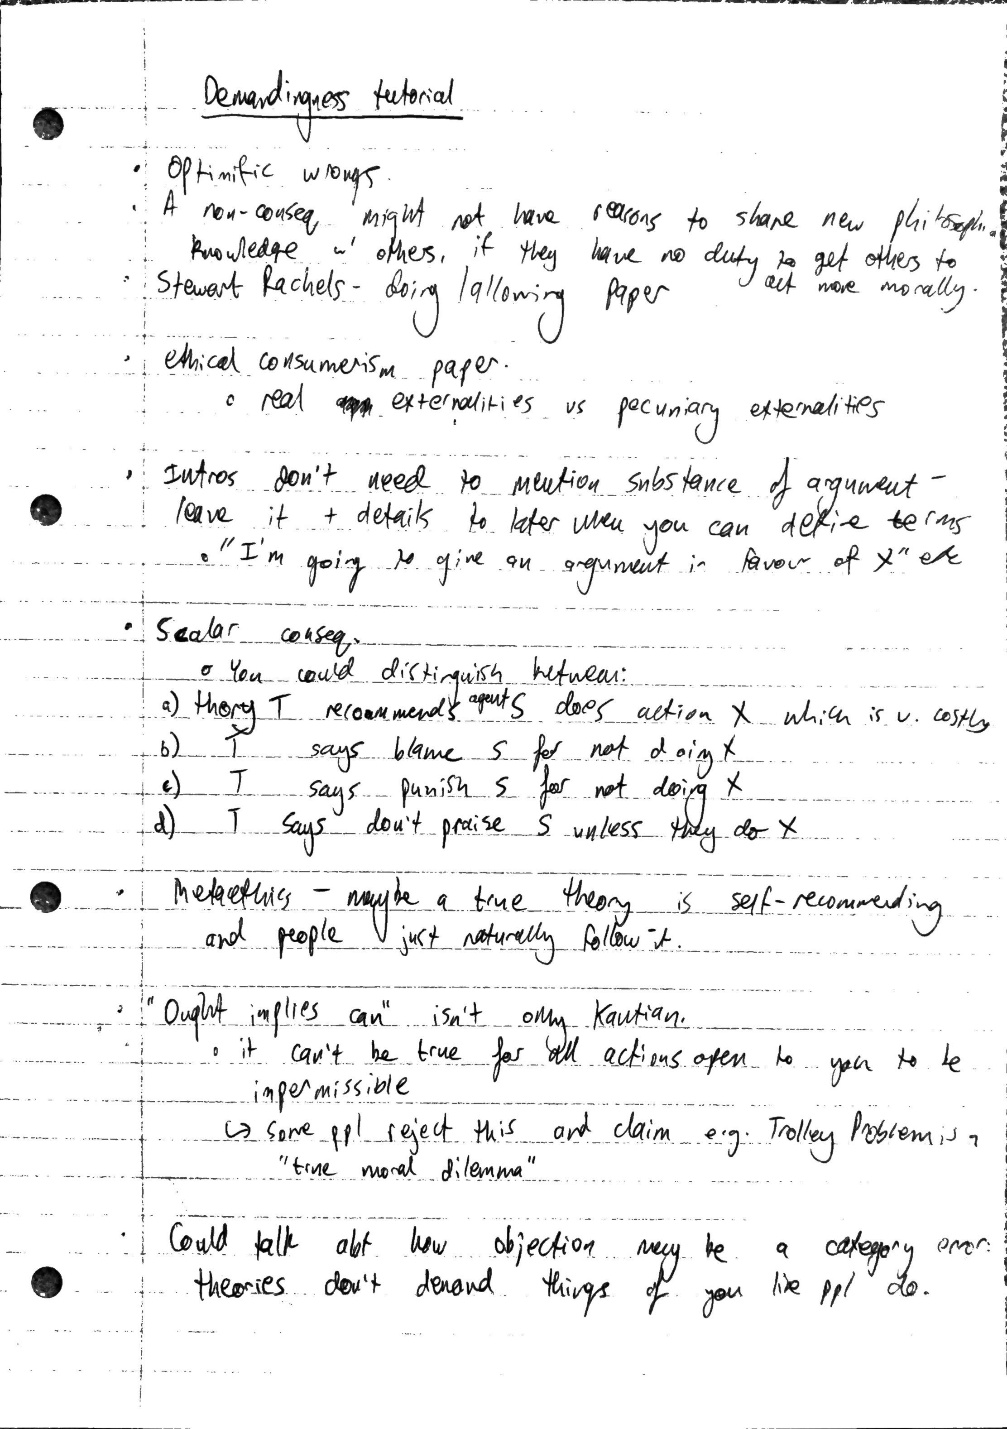 Demandingness tutorial
• Optimific wrongs.
• A non-conseq. might not have reasons to share new philosoph.
knowledge w' others, if they have no duty to get others to
act more morally.
• Stewart Rachels - doing/allowing paper
• ethical consumerism paper.
o real externalities vs pecuniary externalities
• Intros don't need to mention substance of argument -
leave it + details to later when you can define terms
o "I'm going to give an argument in favour of X" etc
• Scalar conseq.
o You could distinguish between:
a) thory T recommends agent S does action X which is v. costly
b) T says blame S for not doing X
c) T says punish S for not doing X
d) T says don't praise S unless they do X
• Metaethics - maybe a true theory is self-recommending
and people just naturally follow it.
• "Ought implies can" isn't only Kantian.
o it can't be true for all actions open to you to be
impermissible
↳ some ppl reject this and claim e.g. Trolley Problem is a
"true moral dilemma"
• Could talk abt how objection may be a category error:
theories don't demand things of you like ppl do.